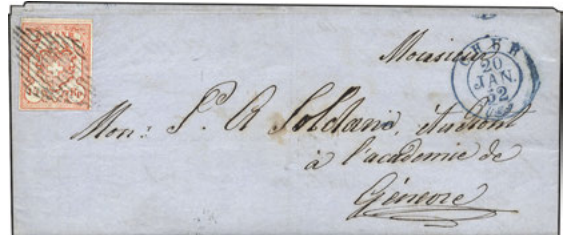 Monsieur
CHUR
20
JAN.
52
Mon: P. A Soldani, étudiant
à l'academie de
Géneve